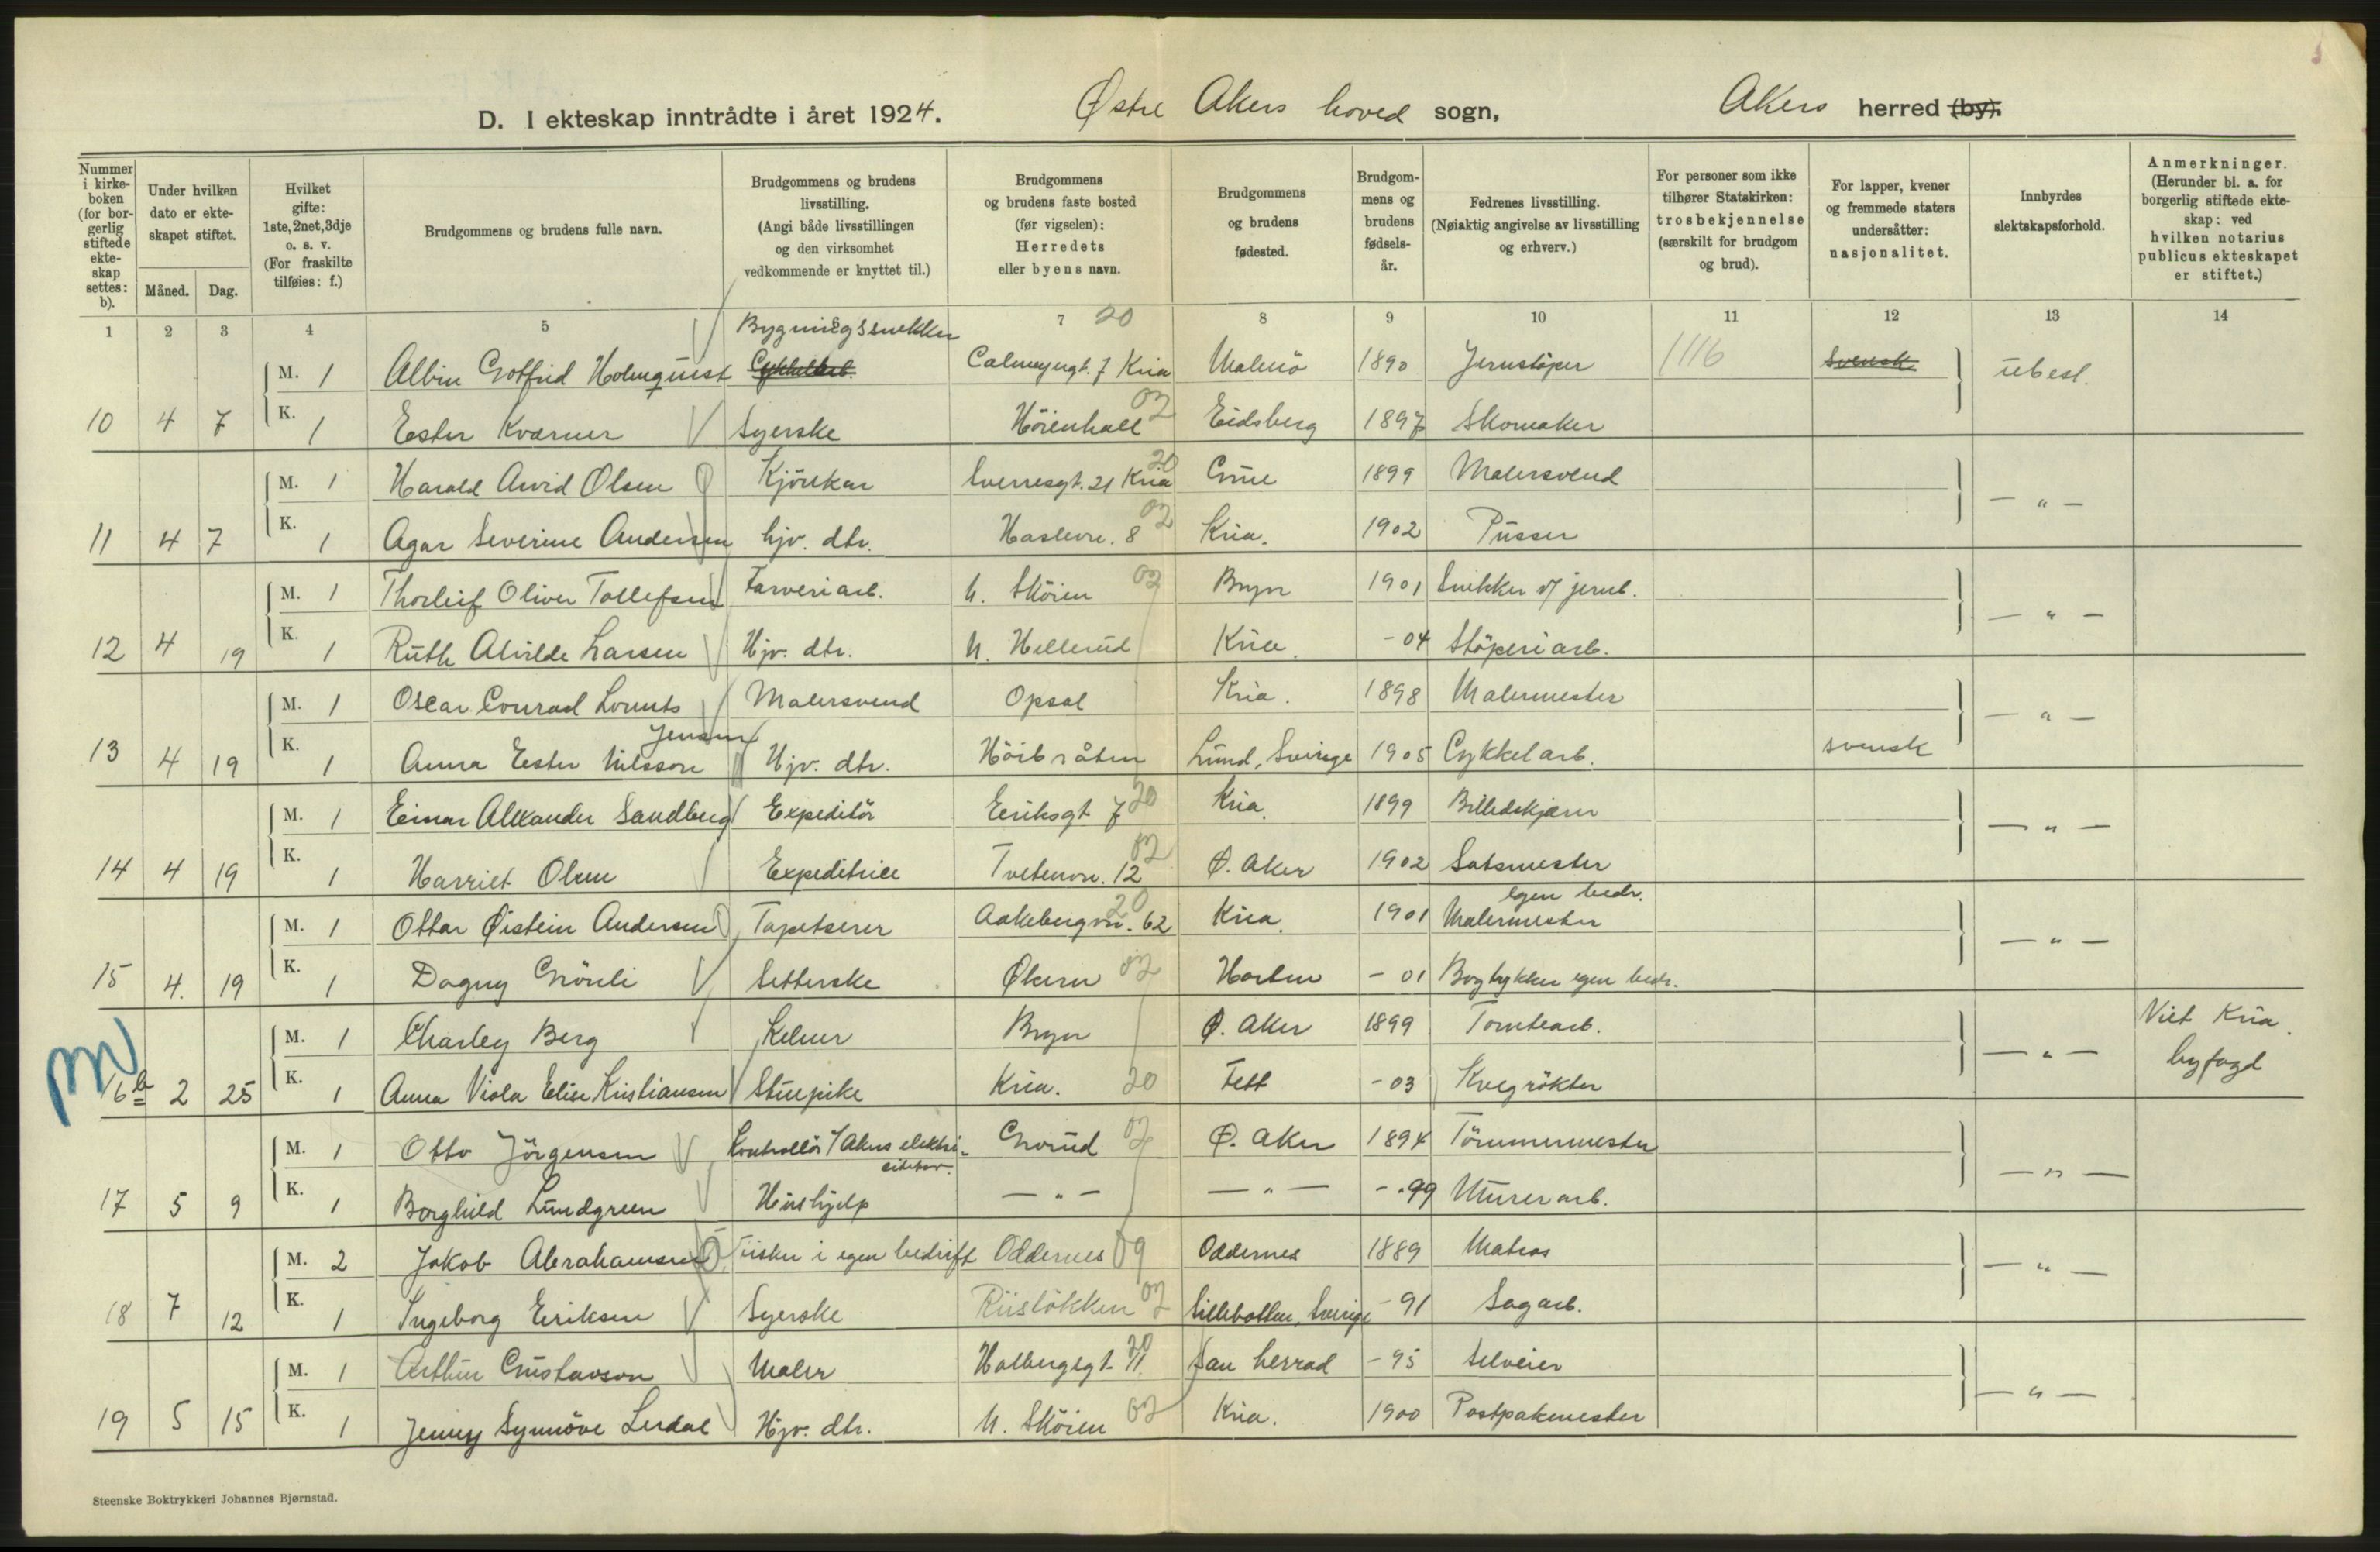 D. I ekteskap inntrådte i året 1924. Østre Akers hoved sogn, Akers herred (by).
Nummer i kirkeboken (for borgerlig stiftede ekteskap settes: b).
Under hvilken dato er ekteskapet stiftet.
Måned. Dag.
Hvilket gifte: 1ste, 2net, 3dje o. s. v. (For fraskilte tilføies: f.)
Brudgommens og brudens fulle navn.
Brudgommens og brudens livsstilling. (Angi både livsstillingen og den virksomhet vedkommende er knyttet til.)
Brudgommens og brudens faste bosted (før vigselen): Herredets eller byens navn.
Brudgommens og brudens fødested.
Brudgommens og brudens fødselsår.
Fedrenes livsstilling. (Nøiaktig angivelse av livsstilling og erhverv.)
For personer som ikke tilhører Statskirken: trosbekjennelse (særskilt for brudgom og brud).
For lapper, kvener og fremmede staters undersåtter: nasjonalitet.
Innbyrdes slektskapsforhold.
Anmerkninger. (Herunder bl. a. for borgerlig stiftede ekteskap: ved hvilken notarius publicus ekteskapet er stiftet.)
1 2 3 4 5 7 20 8 9 10 11 12 13 14
Bygningssnekker
M. 1 Albin Gotfrid Holmquist Cykkelarb. Calmeyergt. 7 Kria Malmö 1890 Jernstöper 1116 Svensk ubesl.
10 4 7 K. 1 Ester Kværner Syerske Höienhall 02 Eidsberg 1897 Skomaker
M. 1 Harald Arvid Olsen Kjörekar Sverresgt. 21 Kria 20 Grue 1899 Malersvend
11 4 7 K. 1 Agar Severine Andersen hjv. dtr. Haslevn. 8 02 Kria. 1902 Pusser — „ —
M. 1 Thorleif Oliver Tollefsen Farveriarb. N. Sköien 02 Bryn 1901 Snekker v/ jernb.
12 4 19 K. 1 Ruth Alvilde Larsen Hjv. dtr. N. Hellerud Kria. - 04 Stöperiarb. — „ —
M. 1 Oscar Conrad Lorents Malersvend Opsal Kria. 1898 Malermester
Jensen
13 4 19 K. 1 Anna Ester Nilsson Hjv. dtr. Höibråten Lund, Sverige 1905 Cykkelarb. svensk — „ —
M. 1 Einar Alexander Sandberg Expeditör Eeriksgt 7 20 Kria. 1899 Billedskjærer
14 4 19 K. 1 Harriet Olsen Expeditrice Tvetenvn. 12 02 Ø. Aker 1902 Salsmester — „ —
egen bedr.
M. 1 Ottar Øistein Andersen Tapetserer Aakebergvn. 62 20 Kria. 1901 Malermester
15 4. 19 K. 1 Dagny Grönli Setterske Økern 02 Horten - 01 Bogtykker egen bedr. — „ —
M. 1 Charley Berg Kelner Bryn Ø. Aker 1899 Tomtearb. Viet Kria.
16 b 2 25 K. 1 Anna Viola Elise Kristiansen Stuepike Kria. 20 Fett - 03 Kvegrökter — „ — byfogd
M. 1 Otto Jörgensen Kontrollör / Akers elektri-
citetsv. Grorud 02 Ø. Aker 1894 Tömmermester
17 5 9 K. 1 Borghild Lundgreen Hushjelp — „ — — „ — - 99 Murerarb. — „ —
M. 2 Jakob Abrahamsen Fisker i egen bedrift Oddernes 09 Oddernes 1889 Matros
18 7 12 K. 1 Ingeborg Eriksen Syerske Riisløkken 02 Sillebotten, Sverige - 91 Sagarb. — „ —
M. 1 Arthur Gustavson Maler Holbergsgt. 11 20 Sau herrad - 95 Selveier
19 5 15 K. 1 Jenny Synnöve Lerdal Hjv. dtr. N. Sköien 02 Kria. 1900 Postpakmester — „ —
Steenske Boktrykkeri Johannes Bjørnstad.